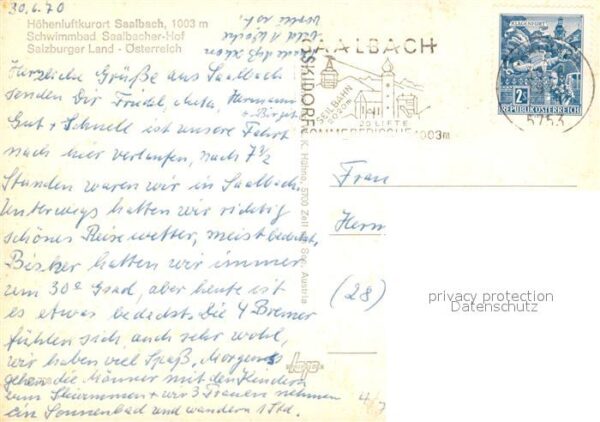 30.6.70
Höhenluftkurort Saalbach, 1003 m
Schwimmbad Saalbacher-Hof
Salzburger Land - Österreich
Herzliche Grüße aus Saalbach
senden Dir Friedel, Anita, Hermann
+ Birgit
Gut + Schnell ist unsere Fahrt
nach hier verlaufen, nach 7 1/2
Stunden waren wir in Saalbach.
Unterwegs hatten wir richtig
schönes Reisewetter, meist bedeckt.
Bisher hatten wir immer
um 30° Grad, aber heute ist
es etwas bedeckt. Die 4 Bremer
fühlen sich auch sehr wohl,
wir haben viel Spaß. Morgens
gehen die Männer mit den Kindern
zum Schwimmen + wir 3 Frauen nehmen
ein Sonnenbad und wandern 1 Std.
SAALBACH
SKIDORF
SEILBAHN
2020m
20 LIFTE
SOMMERFRISCHE 1003m
KLAGENFURT
2 S
REPUBLIK ÖSTERREICH
5753
K. Hühne, 5700 Zell am See, Austria
Frau
Herrn
(28)
privacy protection
Datenschutz